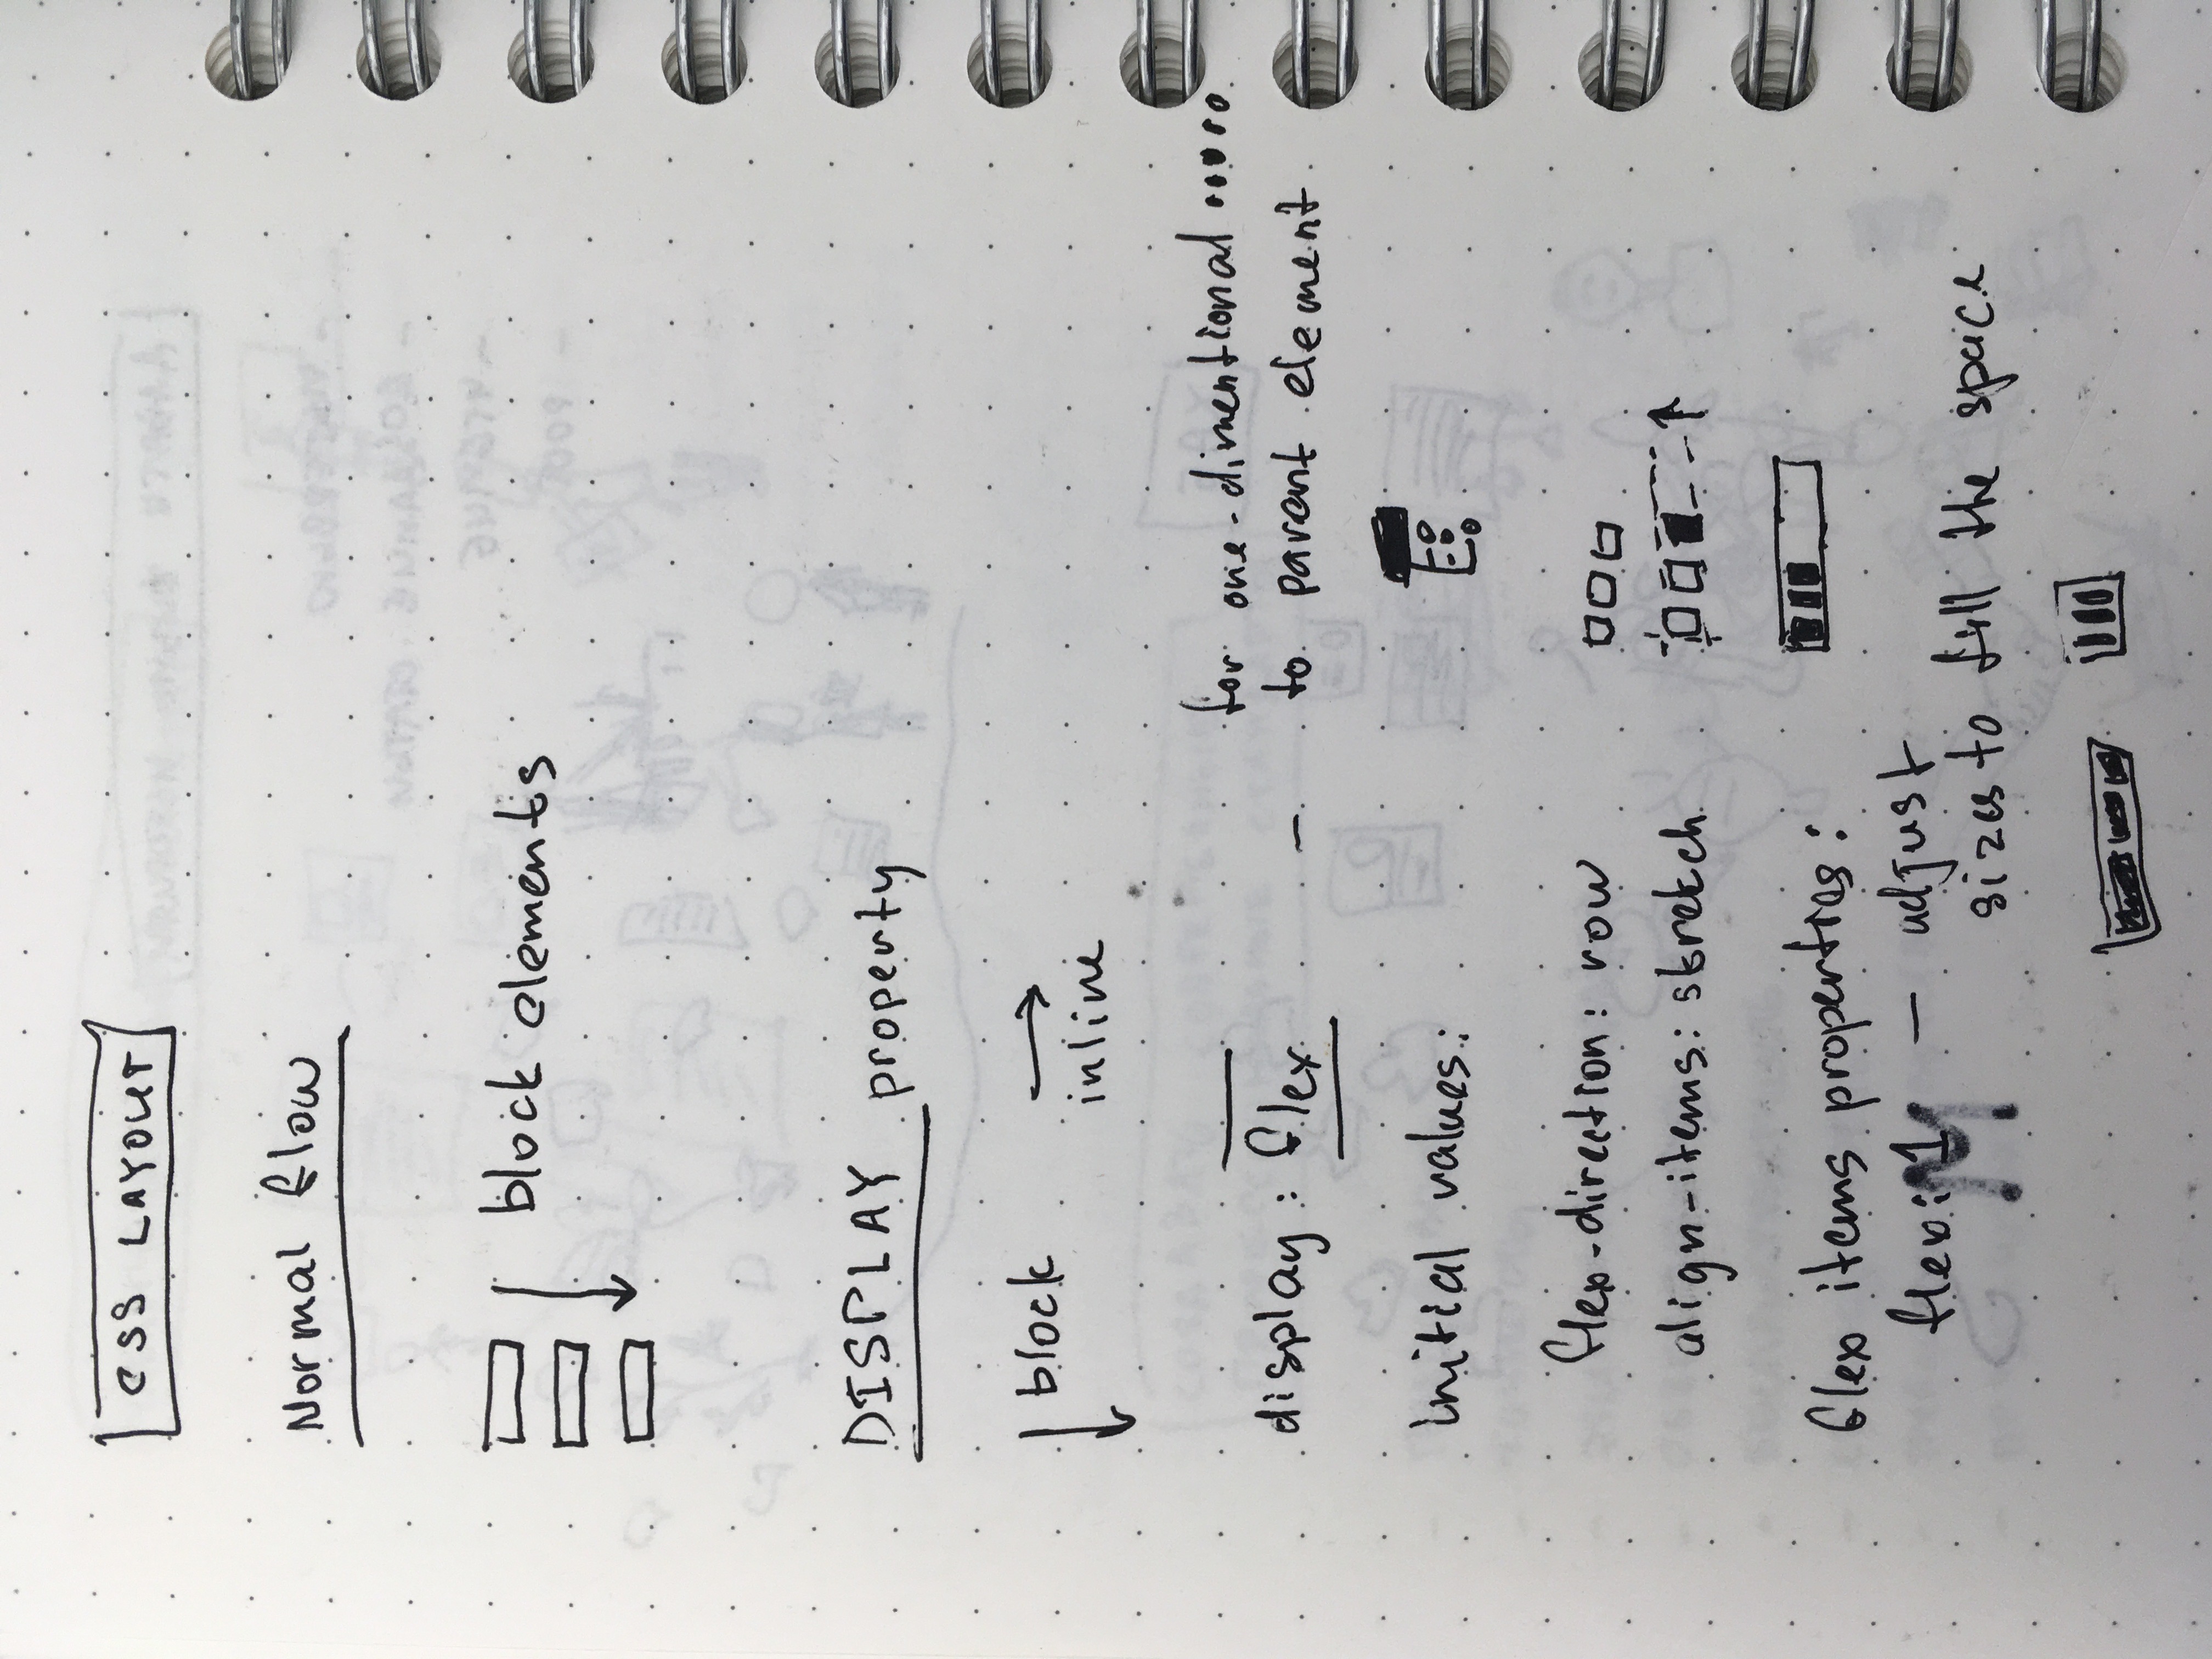 CSS LAYOUT
Normal flow
block elements
DISPLAY property
block
inline
for one-dimentional
display: flex - to parent element
initial values:
flex-direction: row
align-items: stretch
flex items properties:
flex: 1 - adjust
sizes to fill the space